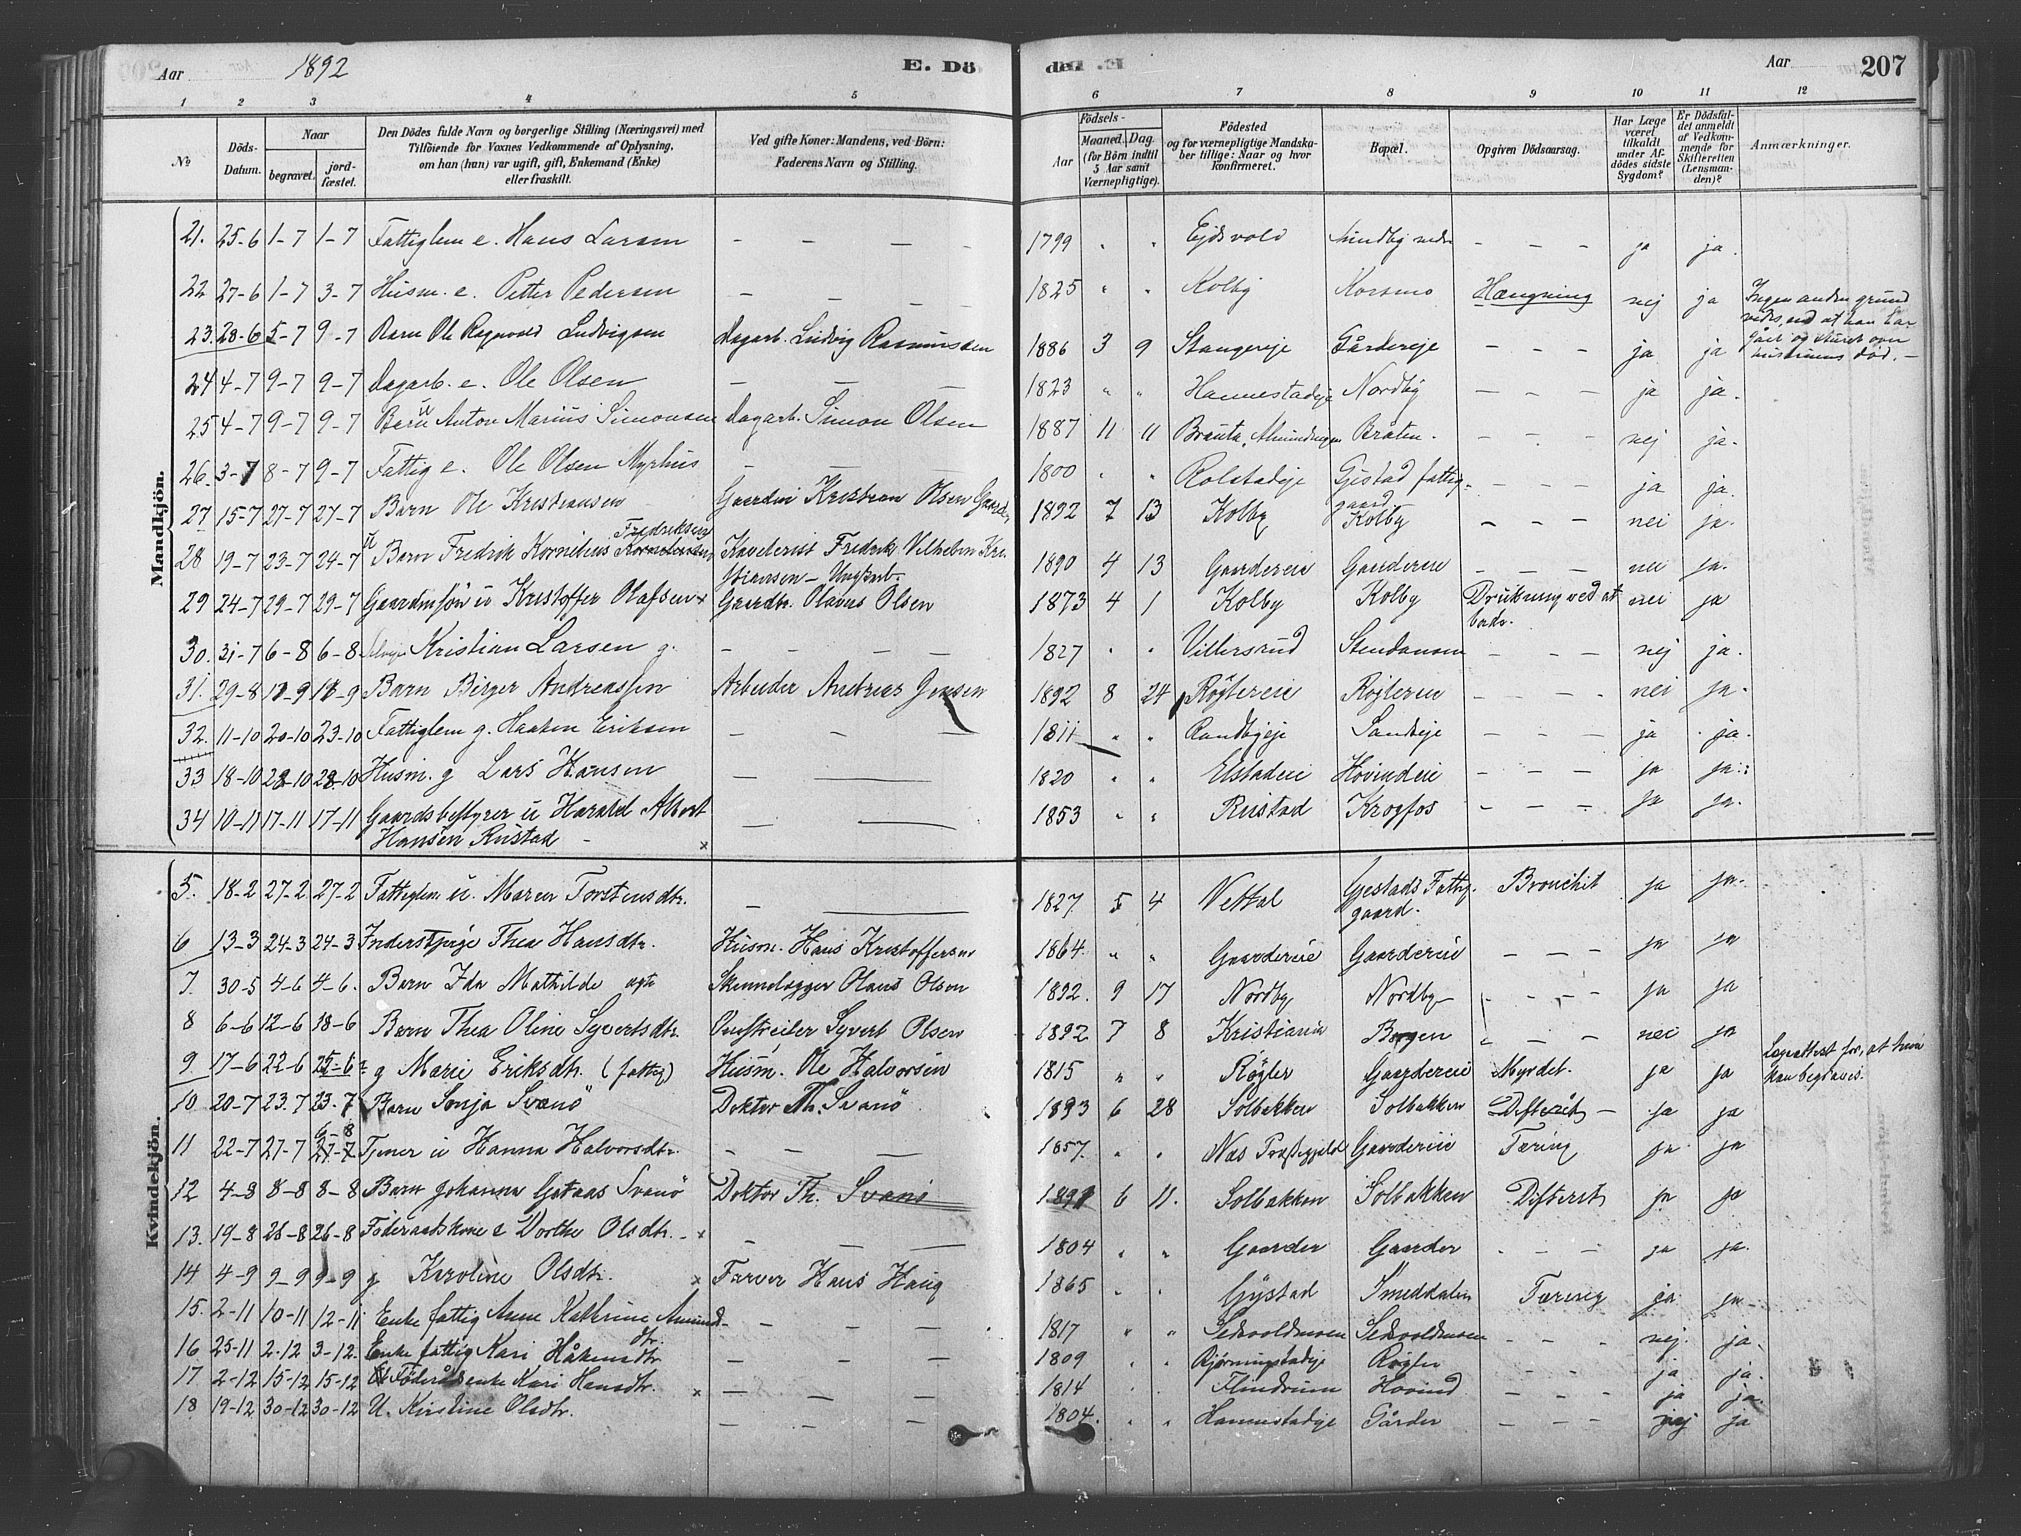 Aar 1892 E. Dö den E. Aar 207
1 2 3 4 5 6 7 8 9 10 11 12
No
Döds-Datum.
Naar
begravet.
jord-fæstet.
Den Dödes fulde Navn og borgerlige Stilling (Næringsvei) med
Tilföiende for Voxnes Vedkommende af Oplysning,
om han (hun) var ugift, gift, Enkemand (Enke)
eller fraskilt.
Ved gifte Koner: Mandens, ved Börn:
Faderens Navn og Stilling.
Födsels-
Aar
Maaned. Dag.
(for Börn indtil
5 Aar samt
Værnepligtige).
Födested
og for værnepligtige Mandska-
ber tillige: Naar og hvor
konfirmeret.
Bopæl.
Opgiven Dödsaarsag.
Har Læge
været
tilkaldt
under Af-
dödes sidste
Sygdom?
Er Dödsfal-
det anmeldt
af Vedkom-
mende for
Skifteretten
(Lensman-
den)?
Anmærkninger.
Mandkjön.
21. 25-6 1-7 1-7 Fattiglem e. Hans Larsen – – – – 1799 " " Ejdsvold – – – ja ja.
22 27-6 1-7 3-7 Husm. e. Petter Pedersen – – – – 1825 " " Kolby Korsmo Hængning nej ja Ingen anden grund
vides, end at han har
gået og sturet over
hustruens død. –
23. 28-6 5-7 9-7 Barn Ole Ragnvald Ludvigsen Dagarb. Ludvig Rasmussen 1886 3 9 Stangereje Gårdereje – – – ja ja
24 4-7 9-7 9-7 Dagarb. e. Ole Olsen – – – 1823 " " Hannestadeje Nordby – – – ja ja.
25 4-7 9-7 9-7 Barn u Anton Marius Simonsen Dagarb. Simon Olsen 1887 11 11 Brauta, Almindingen Bråten. – – – nej ja.
26. 3-7 8-7 9-7 Fattig e. Ole Olsen Myrhus – – – 1800 " " Rolstadeje Gjestad fattig-
gaard – – – ja ja.
27 15-7 27-7 27-7 Barn Ole Kristiansen Gaardm Kristian Olsen Gaarder 1892 7 13 Kolby Kolby – – – nei ja.
28 19-7 23-7 24-7 u Barn Fredrik Kornelius Fredriksen Kavelerist Fredrik Vilhelm Kri
stiansen – 1890 4 13 Gaardereie Gaardereie – – – nei ja.
29 24-7 29-7 29-7 Gaardmsøn u Kristoffer Olafsen x Gaardbr. Olaves Olsen 1873 4 1 Kolby Kolby Drukning ved at
bade. nei ja
30. 31-7 6-8 6-8 Kristian Larsen g. – – – – 1827 " " Villersrud Stendansen – – – nej ja.
31. 29-8 18-9 18-9 Barn Birger Andreassen Arbeider Andreas Jensen 1892 8 24 Røglereie Røglereie – – – nei ja.
32. 11-10 20-10 23-10 Fattiglem g. Haaken Eriksen – – – 1811 " " Randbyeje Sandeje – – – ja ja.
33 18-10 28-10 28-10 Husm. g Lars Hansen – – 1820 " " Elstadeie Hovindeie – – – ja ja.
34 10-11 17-11 17-11 Gaardsbestyrer u Harald Albert
Hansen Rustad – x – – 1853 " " Rustad Krogfos – – – ja ja.
Kvindekjön.
5. 18-2 27-2 27-2 Fattiglem u. Maren Torstensdtr. – – 1827. 5 4 Vettal Gjestads Fattig-
gaard. Bronchit ja ja.
6 13-3 24-3 24-3 Inderstpige Thea Hansdtr. Husm. Hans Kristoffersen 1864. " " Gaardereie Gaardereie – – – ja ja
7. 30-5 4-6 4-6. Barn Ida Mathilde ægte Skinnelægger Olaus Olsen 1892. 9 17 Nordby Nordby – – – ja ja
8 6-6 12-6 18-6 Barn Thea Oline Syvertsdtr. Syvert Olsen 1892 7 8 Kristiania Bergen – – – nei ja
9. 17-6 22-6 25-6 g Marie Eriksdtr. (fattig) Husm. Ole Halvorsen 1815 " " Røgler Gaardereie Myrdet. ja ja Lægeattest for, at hun
kan begraves.
10 20-7 23.7 23-7 Barn Sonja Svanö Doktor Th. Svanö 1893 6 28 Solbakken Solbakken Difterit – ja ja
11 22-7 27-7 27-7 6-8 Tjener u Hanna Halvorsdtr. – – – 1857. " " Næs Præstegjeld Gaardereie Tæring ja ja
12 4-8 8-8 8-8 Barn Johanna Gataas Svanö Doktor Th. Svanö 1891 6 11. Solbakken Solbakken Difterit ja ja
13. 19-8 26-8 26-8 Föderaadskone e Dorthe Olsdtr. – x – – – 1804 " " Gaarder Gaarder – – – ja ja.
14 4-9 9-9 9-9 g Karoline Olsdtr. x Farver Hans Haug 1865 " " Gystad Smeddalen Tæring ja ja
15. 2-11 10-11 12-11 Enke fattig Anne Kathrine Amund-
dtr. – – – 1817 " " Sedvoldmoen Sedvoldmoen – – – nej. ja.
16 25-11 2.12 3-12. Enke fattig Kari Håkensdtr – – – 1809 " " Bjørnungstadeje Røgler – – – ja ja.
17 2-12 15-12 15-12 Föderådsenke Kari Hansdtr. x – – – 1814 " " Flindrum Hovind – – – ja ja.
18 19-12 30-12 30-12 U. Kirstine Olsdtr. – – – 1804. " " Hannestadeje Gårder – – – nej ja